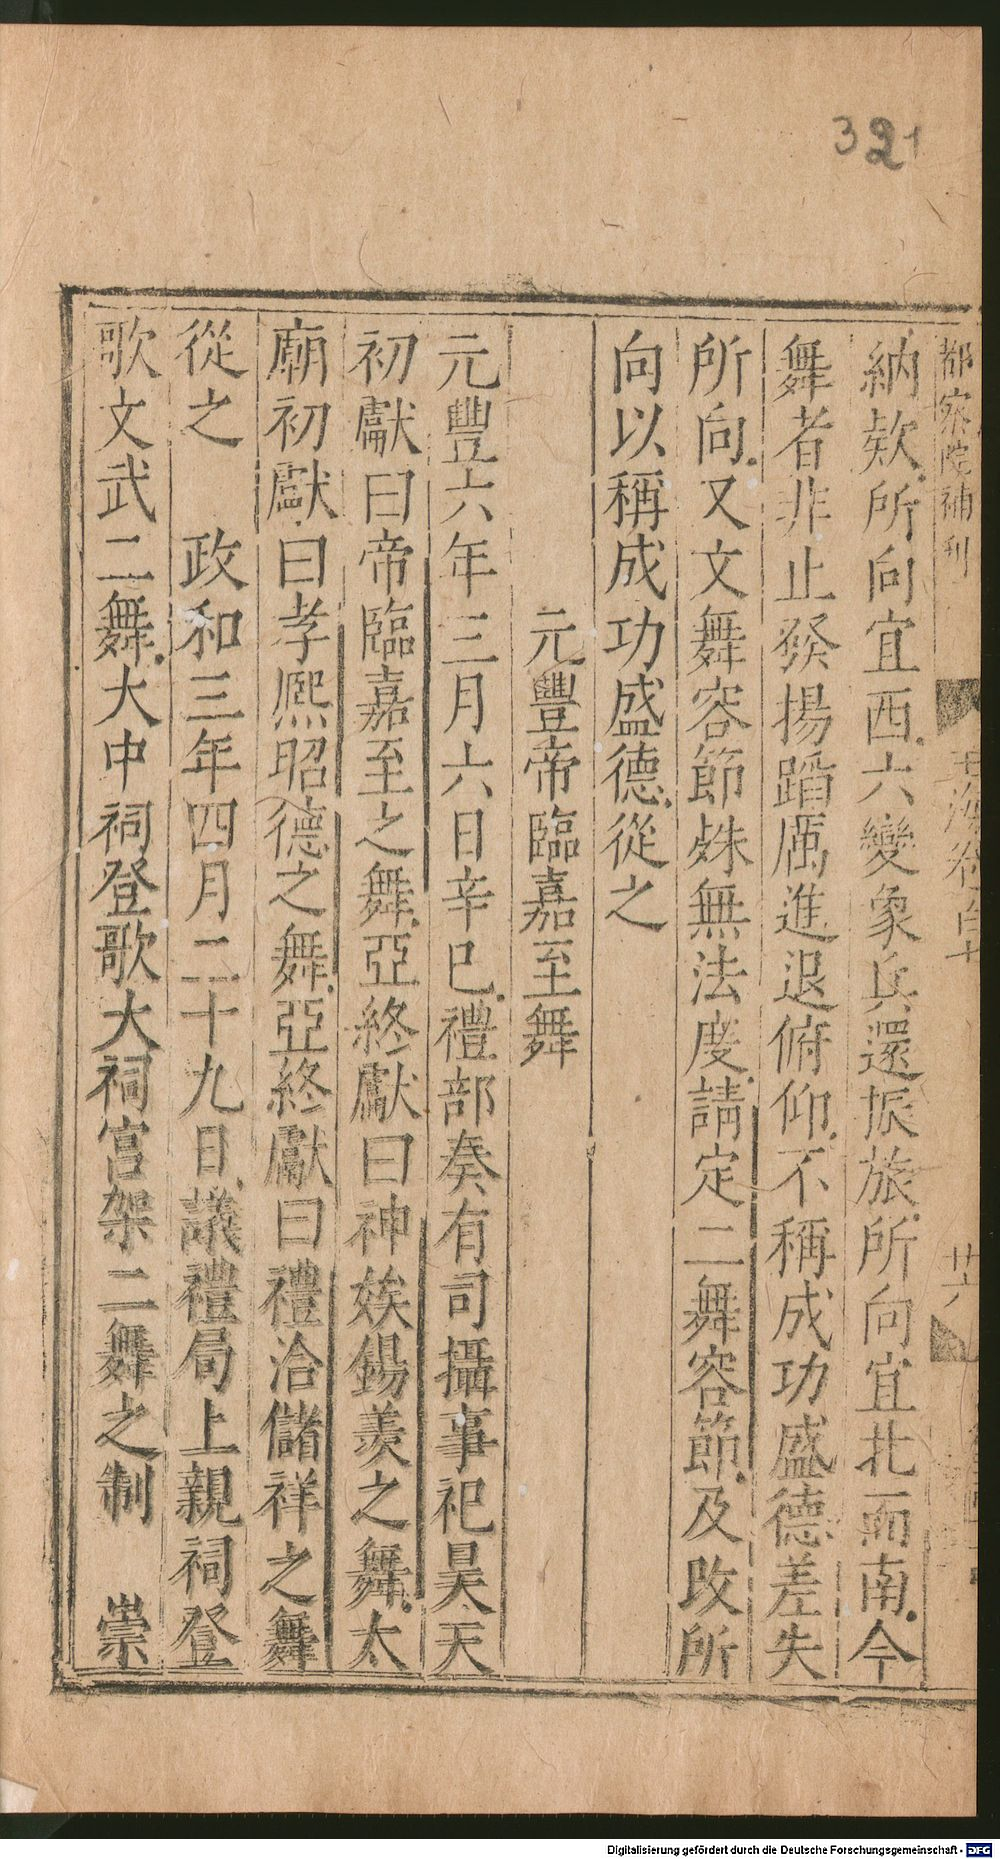 321
都察院補刊
玉海卷百十
廿六
納欵所向宜西六變象兵還振旅所向宜北而南今
舞者非止發揚蹈厲進退俯仰不稱成功盛德差失
所向又文舞容節殊無法度請定二舞容節及改所
向以稱成功盛德從之
元豐帝臨嘉至舞
元豐六年三月六日辛巳禮部奏有司攝事祀昊天
初獻曰帝臨嘉至之舞亞終獻曰神娭錫羨之舞太
廟初獻曰孝熙昭德之舞亞終獻曰禮洽儲祥之舞
從之 政和三年四月二十九日議禮局上親祠登
歌文武二舞大中祠登歌大祠宮架二舞之制 崇
Digitalisierung gefördert durch die Deutsche Forschungsgemeinschaft - DFG